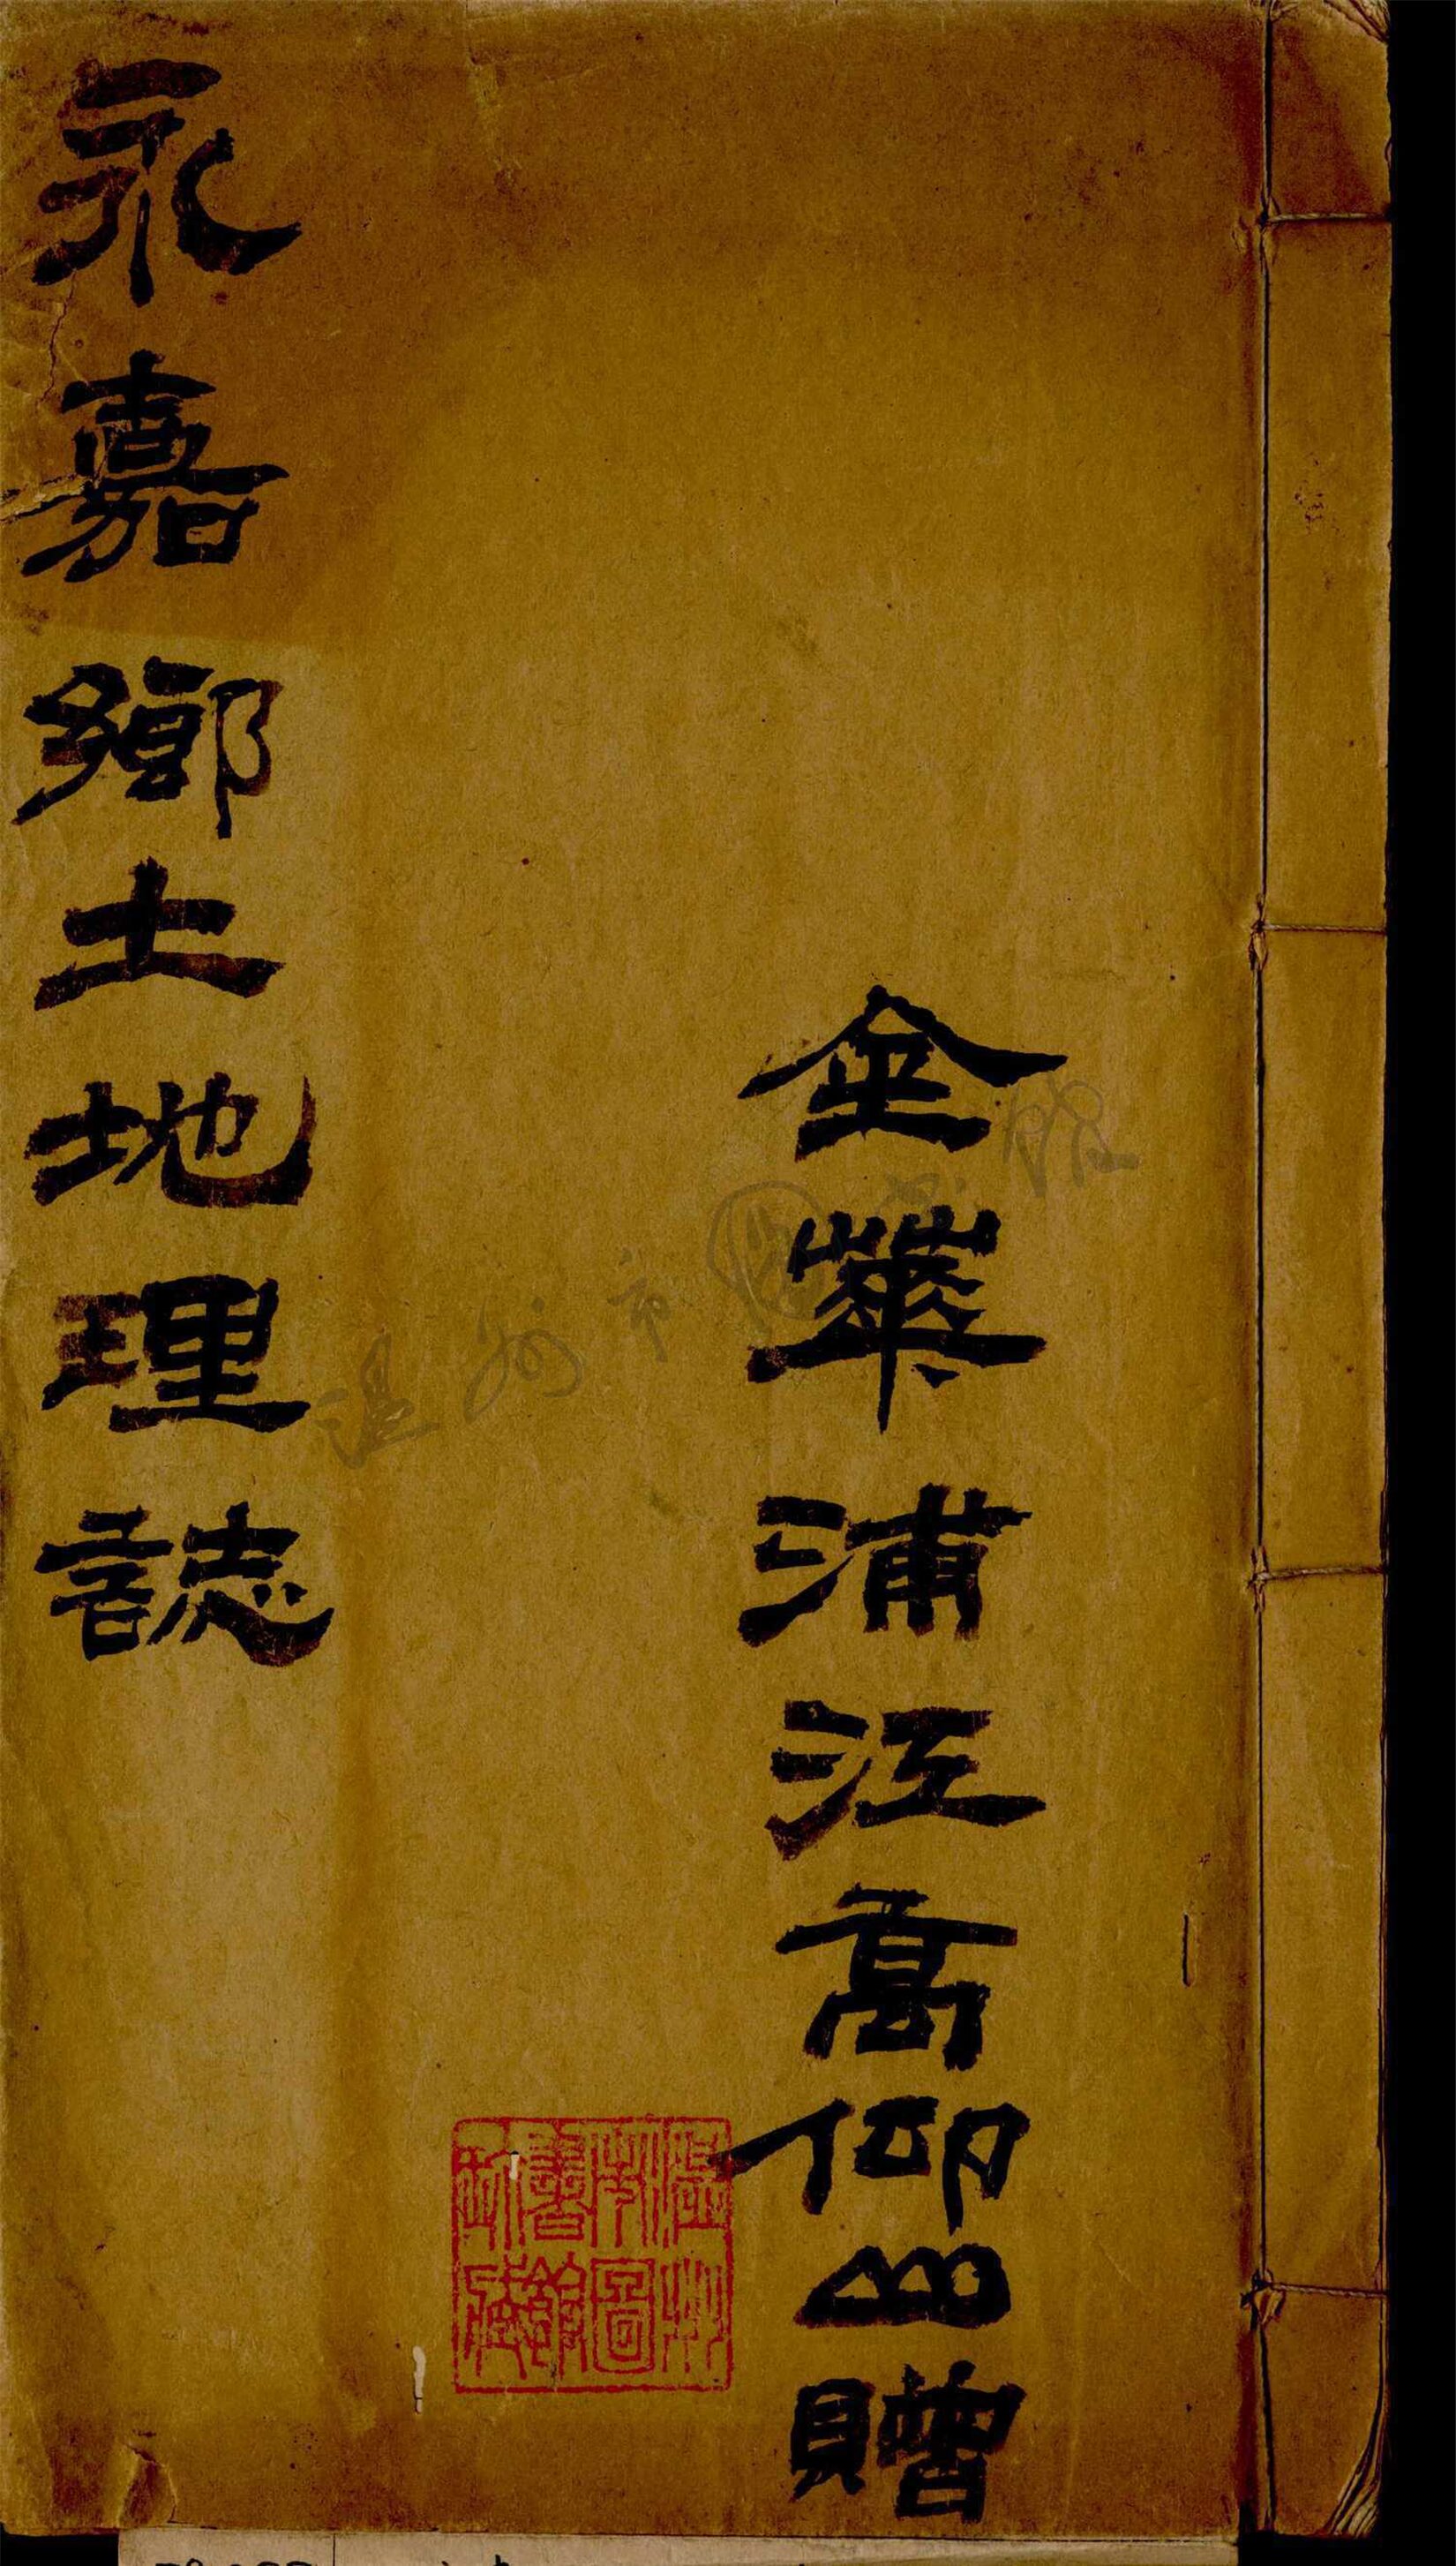 金華浦江高仰山贈
永嘉鄉土地理誌
溫州市圖書館
溫州市圖書館所藏